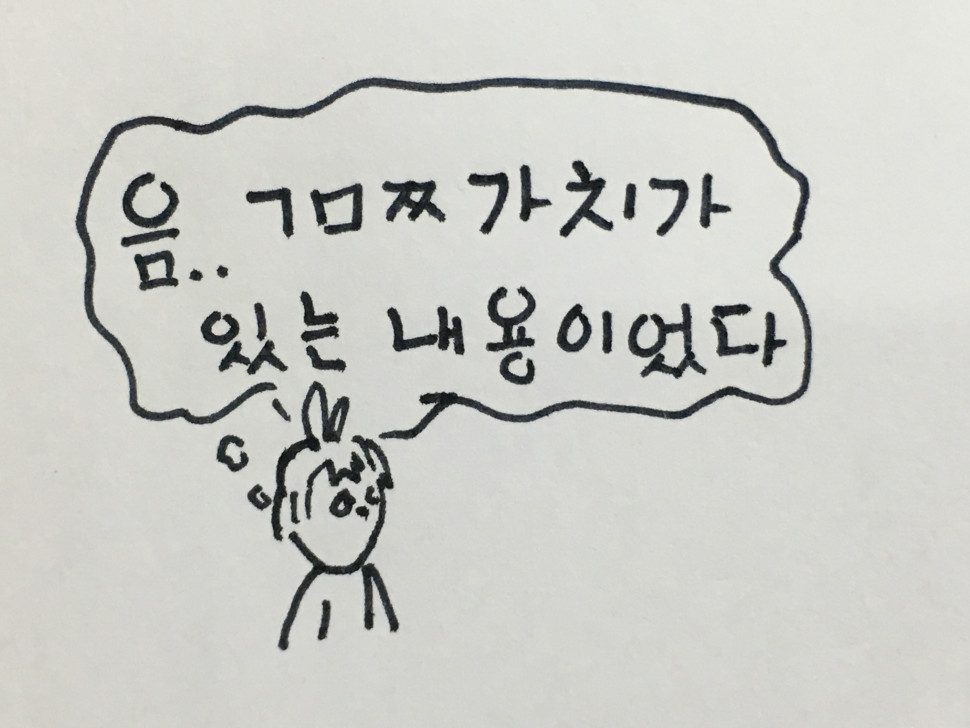 음.. ㄱㅁㅉ가치가
있는 내용이었다